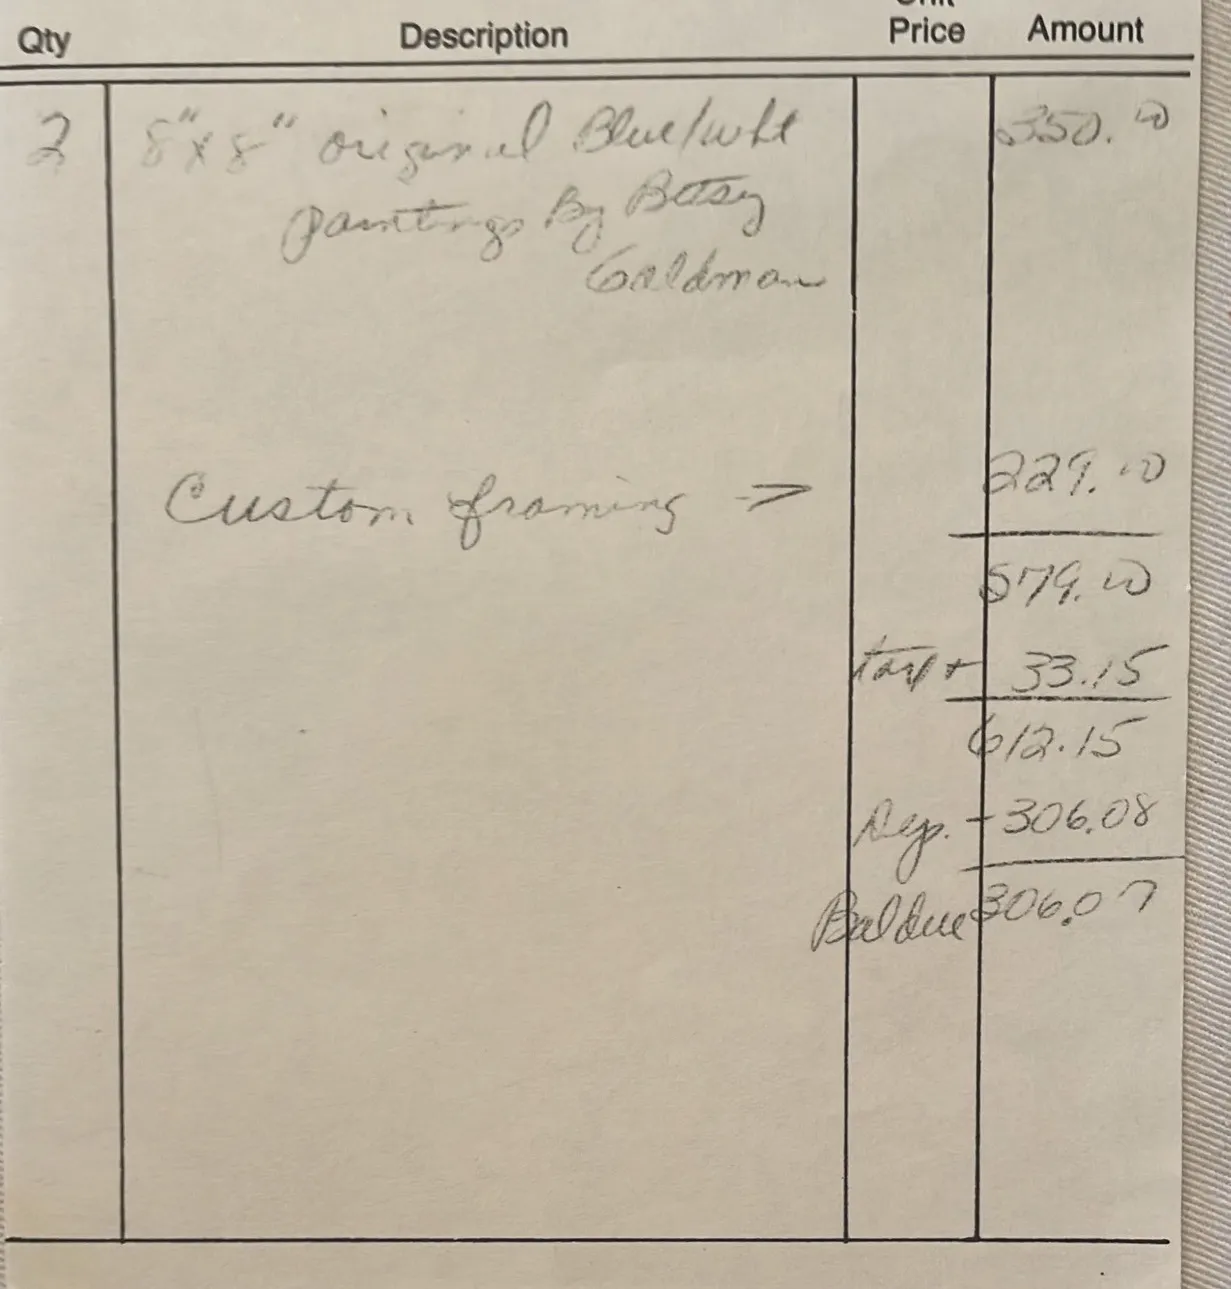 Qty Description Unit Price Amount
2 8"x8" original Blue/wht 350.00
paintings By Betsy
Goldman
Custom framing -> 229.00
579.00
tax + 33.15
612.15
Dep. - 306.08
Bal due 306.07